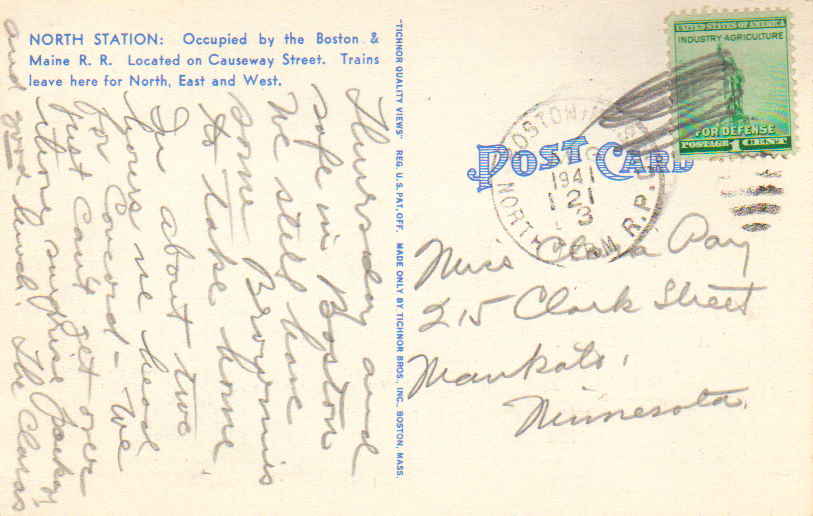 NORTH STATION: Occupied by the Boston &
Maine R. R. Located on Causeway Street. Trains
leave here for North, East and West.
Thursday and
safe in Boston
We still have
some Brownies
to take home.
In about two
hours we head
for Concord - We
just can't get over
those surprise packages
and good lunch. The Claras
"TICHNOR QUALITY VIEWS" REG. U.S. PAT. OFF. MADE ONLY BY TICHNOR BROS., INC., BOSTON, MASS.
UNITED STATES OF AMERICA
INDUSTRY·AGRICULTURE
FOR DEFENSE
POSTAGE 1 CENT
POST CARD
BOSTON
1941
21
3
NORTH
R.P.O.
Miss Clara Pay
215 Clark Street
Mankato,
Minnesota.